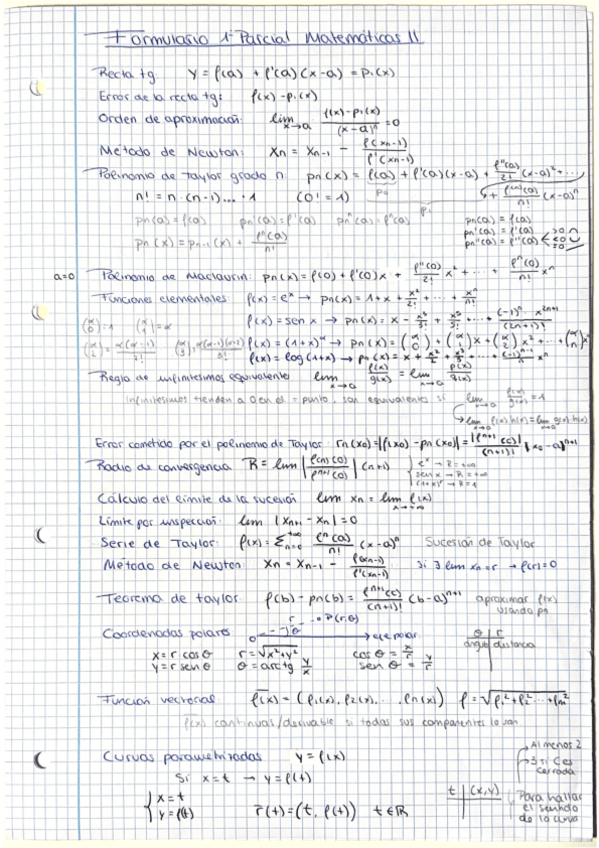 Formulario 1er Parcial Matemáticas II
Recta tg: y = f(a) + f'(a)(x-a) = p₁(x)
Error de la recta tg: f(x) - p₁(x)
Orden de aproximación: lim x→a (f(x)-p₁(x))/(x-a)ⁿ = 0
Método de Newton: xn = xn-1 - f(xn-1)/f'(xn-1)
Polinomio de Taylor grado n: pn(x) = f(a) + f'(a)(x-a) + f''(a)/2! (x-a)² + ...
+ f⁽ⁿ⁾(a)/n! (x-a)ⁿ
n! = n·(n-1)...·1 (0! = 1) p₀ p₁
pn(a) = f(a) pn'(a) = f'(a) pnⁿ(a) = fⁿ(a)
pn(a) = f(a)
pn'(a) = f'(a)
pn''(a) = f''(a) >0 <0 =0
pn(x) = pn-1(x) + fⁿ(a)/n!
a=0 Polinomio de Maclaurin: pn(x) = f(0) + f'(0)x + f''(0)/2! x² + ... + fⁿ(0)/n! xⁿ
Funciones elementales: f(x) = eˣ → pn(x) = 1 + x + x²/2! + ... + xⁿ/n!
f(x) = sen x → pn(x) = x - x³/3! + x⁵/5! + ... + (-1)ⁿ x²ⁿ⁺¹/(2n+1)!
(α 0) = 1 (α 1) = α
(α 2) = α(α-1)/2! (α 3) = α(α-1)(α-2)/3! f(x) = (1+x)^α → pn(x) = (α 0) + (α 1)x + (α 2)x² + ... + (α n)xⁿ
f(x) = log(1+x) → pn(x) = x + x²/2 + x³/3 - ... (-1)ⁿ⁻¹/n xⁿ
Regla de infinitésimos equivalentes lim x→a f(x)/g(x) = lim x→a p(x)/q(x)
Infinitésimos tienden a 0 en el = punto, son equivalentes si lim x→a f(x)/g(x) = 1
↳ lim x→a f(x)·h(x) = lim x→a g(x)·h(x)
Error cometido por el polinomio de Taylor: rn(x₀) = |f(x₀) - pn(x₀)| = |fⁿ⁺¹(c)/(n+1)!| |x₀-a|ⁿ⁺¹
Radio de convergencia R = lim |fⁿ(0)/fⁿ⁺¹(0)| (n+1)
{ eˣ → R = +∞
sen x → R = +∞
(1+x)^α → R = 1
Cálculo del límite de la sucesión lim xn = lim x→+∞ f(x)
Límite por inspección: lim |xn+1 - xn| = 0
Serie de Taylor: f(x) = Σ n=0 +∞ fⁿ(a)/n! (x-a)ⁿ Sucesión de Taylor
Método de Newton: xn = xn-1 - f(xn-1)/f'(xn-1) si ∃ lim xn = r → f(r) = 0
Teorema de Taylor f(b) - pn(b) = fⁿ⁺¹(c)/(n+1)! (b-a)ⁿ⁺¹ aproximar f(x)
usando pn
r P(r,θ)
Coordenadas polares 0 θ → eje polar θ | r
ángulo distancia
x = r cos θ r = √x²+y² cos θ = x/r
y = r sen θ θ = arctg y/x sen θ = y/r
Función vectorial f(x) = (f₁(x), f₂(x), ..., fn(x)) f = √f₁²+f₂²...+fm²
f(x) continuas/derivable si todas sus componentes lo son
Curvas parametrizadas y = f(x)
Al menos 2
3 si C es
cerrada
Si x = t → y = f(t)
{ x = t
y = f(t) r(t) = (t, f(t)) t ∈ ℝ
t | (x,y)
Para hallar
el sentido
de la curva